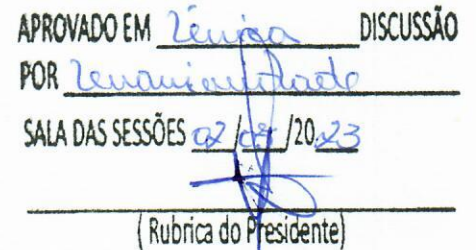 APROVADO EM única DISCUSSÃO
POR unanimidade
SALA DAS SESSÕES 02 / /2023
(Rubrica do Presidente)